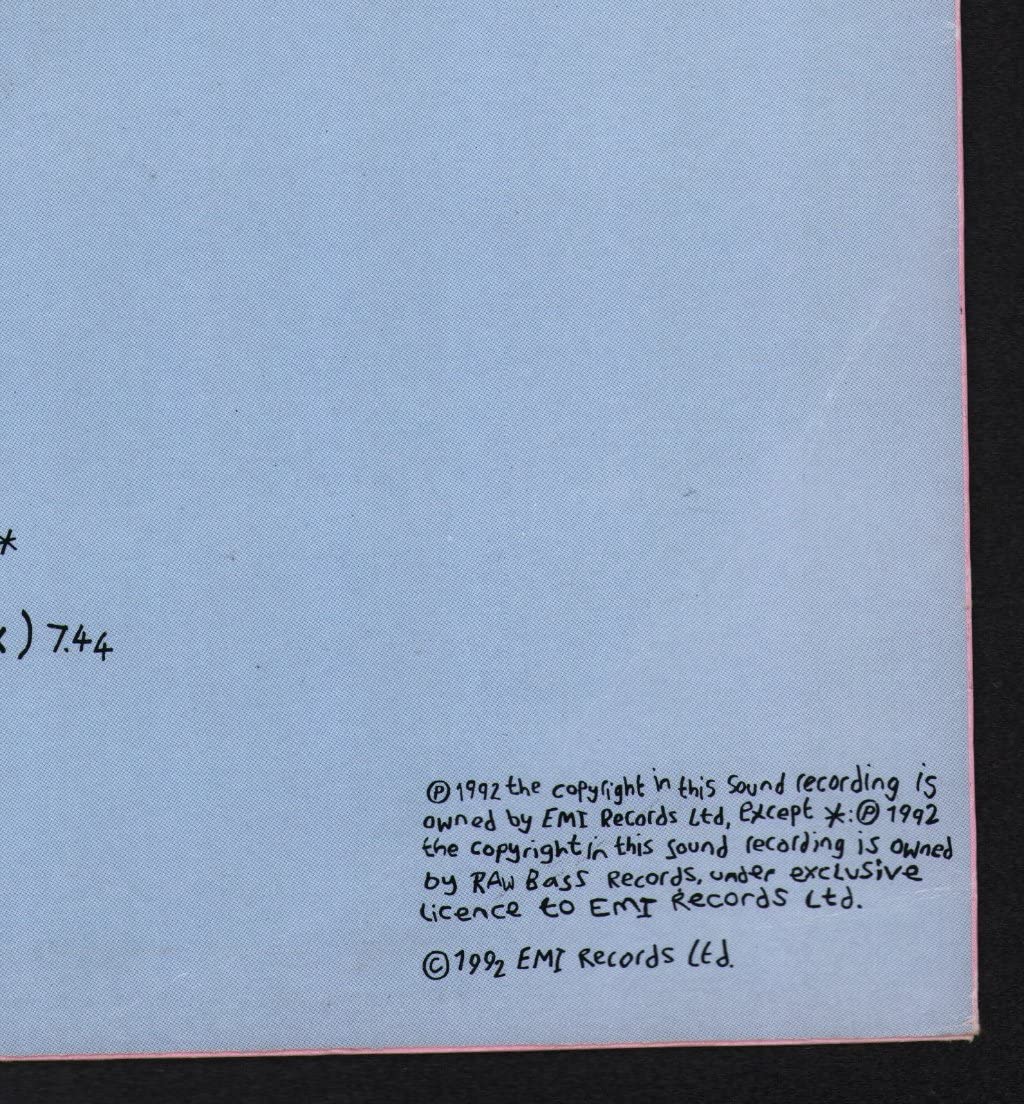 *
) 7.44
℗ 1992 the copyright in this sound recording is
owned by EMI Records Ltd, except *:℗ 1992
the copyright in this sound recording is owned
by RAW BASS Records, under exclusive
licence to EMI Records Ltd.
© 1992 EMI Records Ltd.